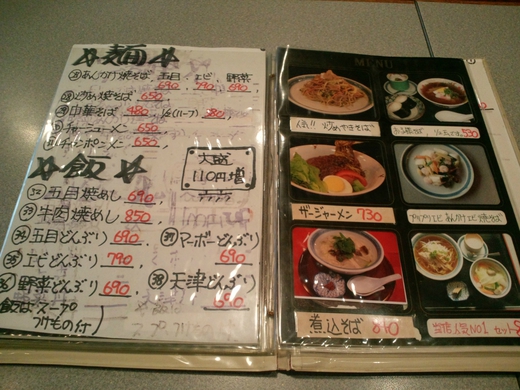 麺
あんかけ焼そば 五目 エビ 野菜
690, 790, 690,
焼そば 650
中華そば 480 1/2(ハーフ) 380,
チャーシューメン 650
チャンポンメン 650
飯
大盛
110円増
㉜ 五目焼めし 690
㉝ 牛肉焼めし 850
㉞ 五目どんぶり 690
㉟ エビどんぶり 790
㊱ 野菜どんぶり 690
㊲ マーボーどんぶり 690
㊳ 天津どんぶり 690
飯はスープ
つけもの付
MENU
人気!!
ザージャーメン 730
プリプリエビあんかけ焼そば
煮込そば 840
当店人気NO1 セット